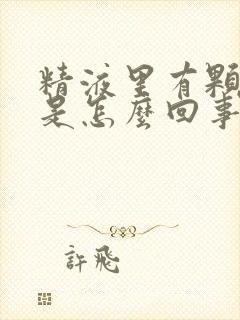 精液里有顆
是怎麼回事
許飛